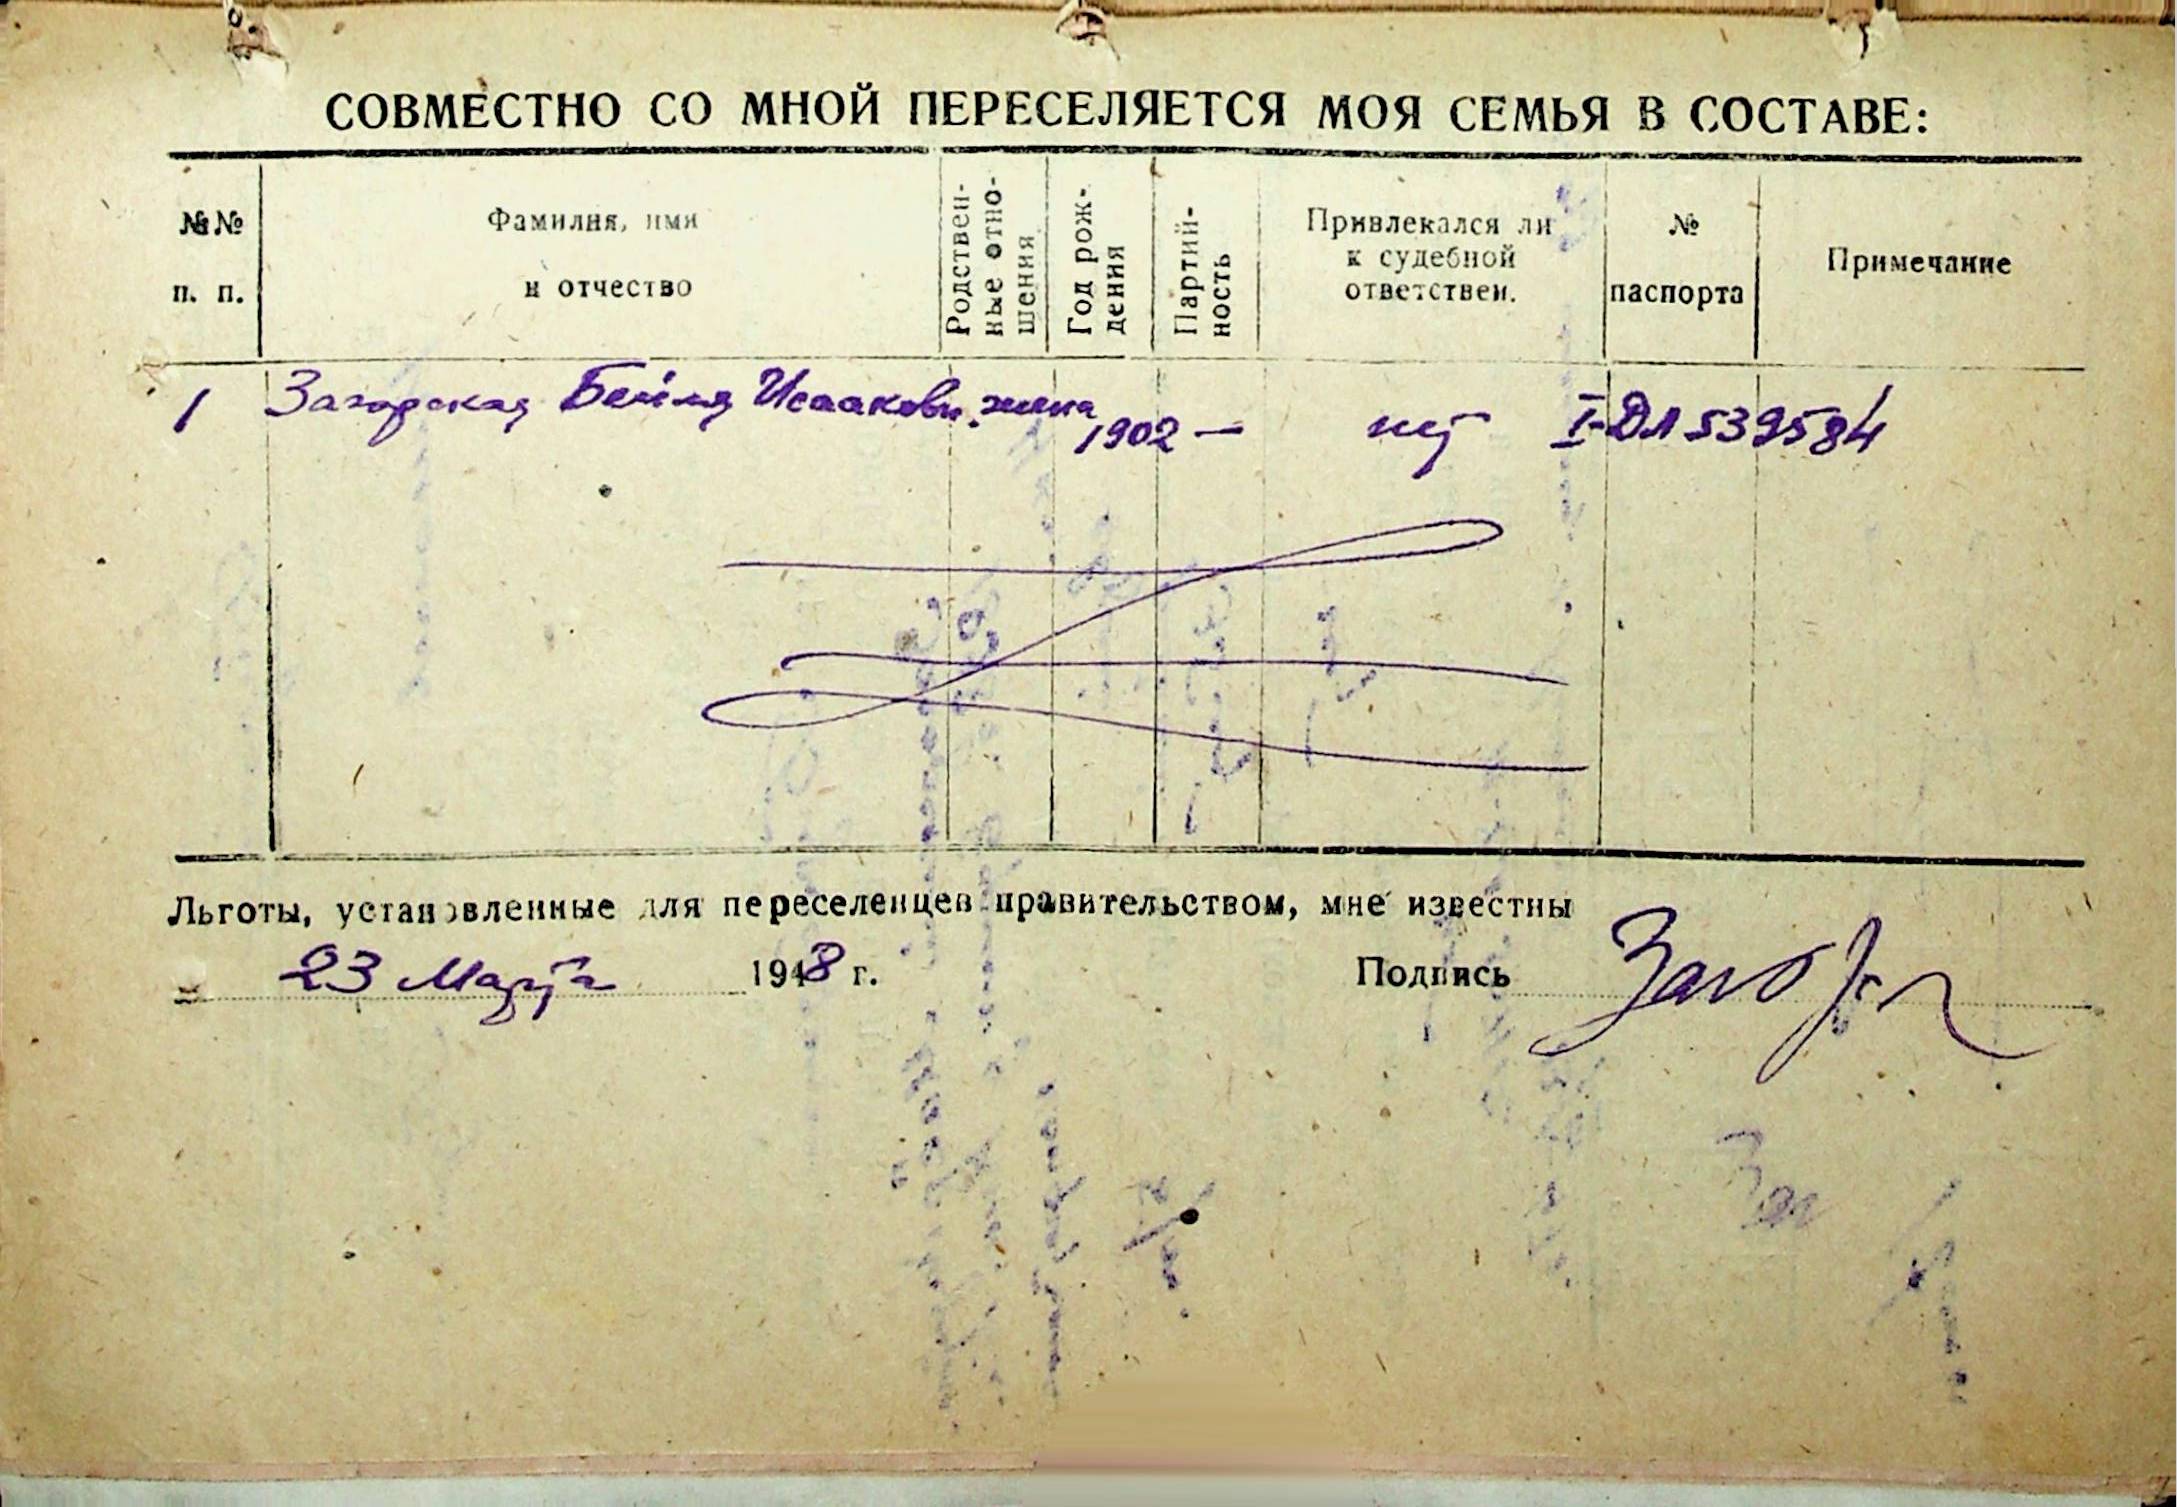 СОВМЕСТНО СО МНОЙ ПЕРЕСЕЛЯЕТСЯ МОЯ СЕМЬЯ В СОСТАВЕ:
№№ п. п.
Фамилия, имя и отчество
Родствен-ные отно-шения
Год рож-дения
Партий-ность
Привлекался ли к судебной ответствен.
№ паспорта
Примечание
1 Загорская Бейля Исааковн. жена 1902 — нет I-ДЛ 539584
Льготы, установленные для переселенцев правительством, мне известны
23 Марта 1948 г. Подпись